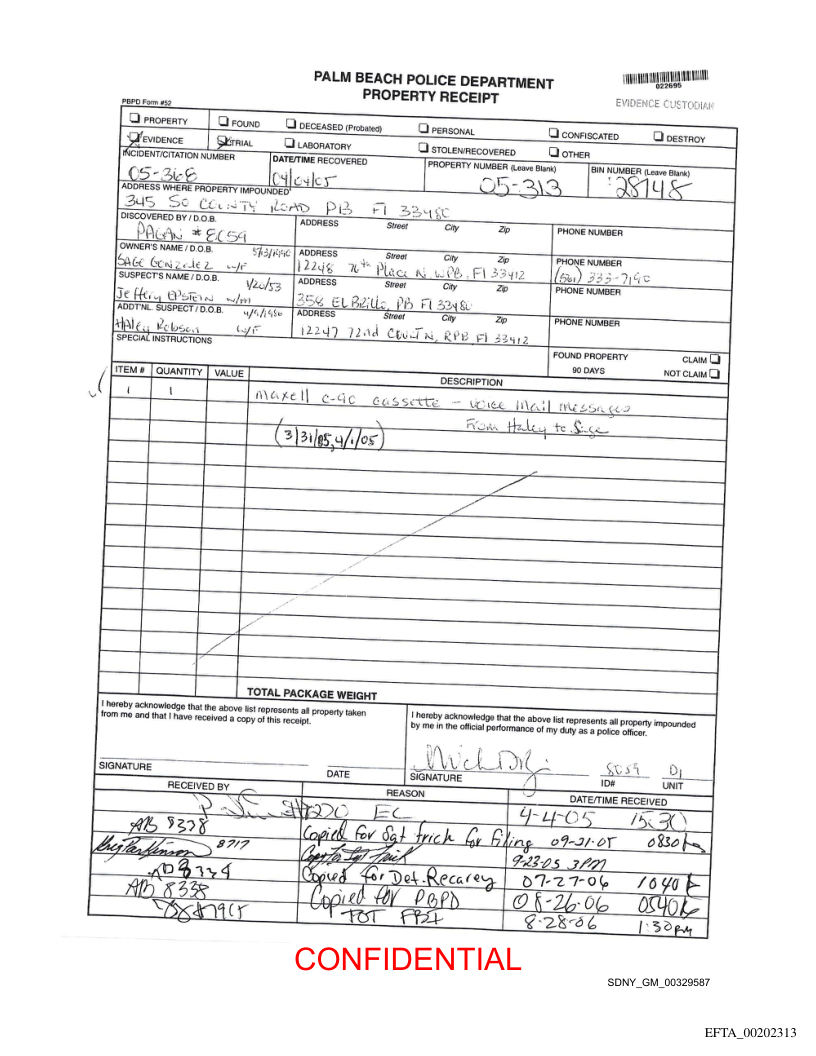 PALM BEACH POLICE DEPARTMENT
PROPERTY RECEIPT
022695
EVIDENCE CUSTODIAN
PBPD Form #52
PROPERTY FOUND DECEASED (Probated) PERSONAL CONFISCATED DESTROY
EVIDENCE TRIAL LABORATORY STOLEN/RECOVERED OTHER
INCIDENT/CITATION NUMBER DATE/TIME RECOVERED PROPERTY NUMBER (Leave Blank) BIN NUMBER (Leave Blank)
05-368 04/04/05 05-313 28148
ADDRESS WHERE PROPERTY IMPOUNDED
345 SO COUNTY ROAD PB Fl 33480
DISCOVERED BY / D.O.B. ADDRESS Street City Zip PHONE NUMBER
PAGAN
OWNER'S NAME / D.O.B. ADDRESS Street City Zip PHONE NUMBER
SAGE GONZALEZ W/F 12248 76th Place N WPB, Fl 33412 (561) 333-7190
SUSPECT'S NAME / D.O.B. 1/20/53 ADDRESS Street City Zip PHONE NUMBER
Jeffery EPSTEIN W/M 358 EL Brillo, PB Fl 33480
ADDT'NL. SUSPECT / D.O.B. 4/9/1986 ADDRESS Street City Zip PHONE NUMBER
Haley Robson W/F 12247 72nd Court N, RPB Fl 33412
SPECIAL INSTRUCTIONS
FOUND PROPERTY CLAIM
90 DAYS NOT CLAIM
ITEM # QUANTITY VALUE DESCRIPTION
1 1 Maxell C-90 cassette - voice mail messages
From Haley to Sage
(3/31/05, 4/1/05)
TOTAL PACKAGE WEIGHT
I hereby acknowledge that the above list represents all property taken
from me and that I have received a copy of this receipt.
I hereby acknowledge that the above list represents all property impounded
by me in the official performance of my duty as a police officer.
8059 D1
SIGNATURE DATE SIGNATURE ID# UNIT
RECEIVED BY REASON DATE/TIME RECEIVED
EC 4-4-05 1530
AB 8338 Copied for Sgt Frick for Filing 09-21-05 0830
8717 9-23-05 3PM
Copied for Det. Recarey 07-27-06 1040
AB 8338 Copied for PBPD 08-26-06 0540
TOT FBI 8-28-06 1:30pm
CONFIDENTIAL
SDNY_GM_00329587
EFTA_00202313